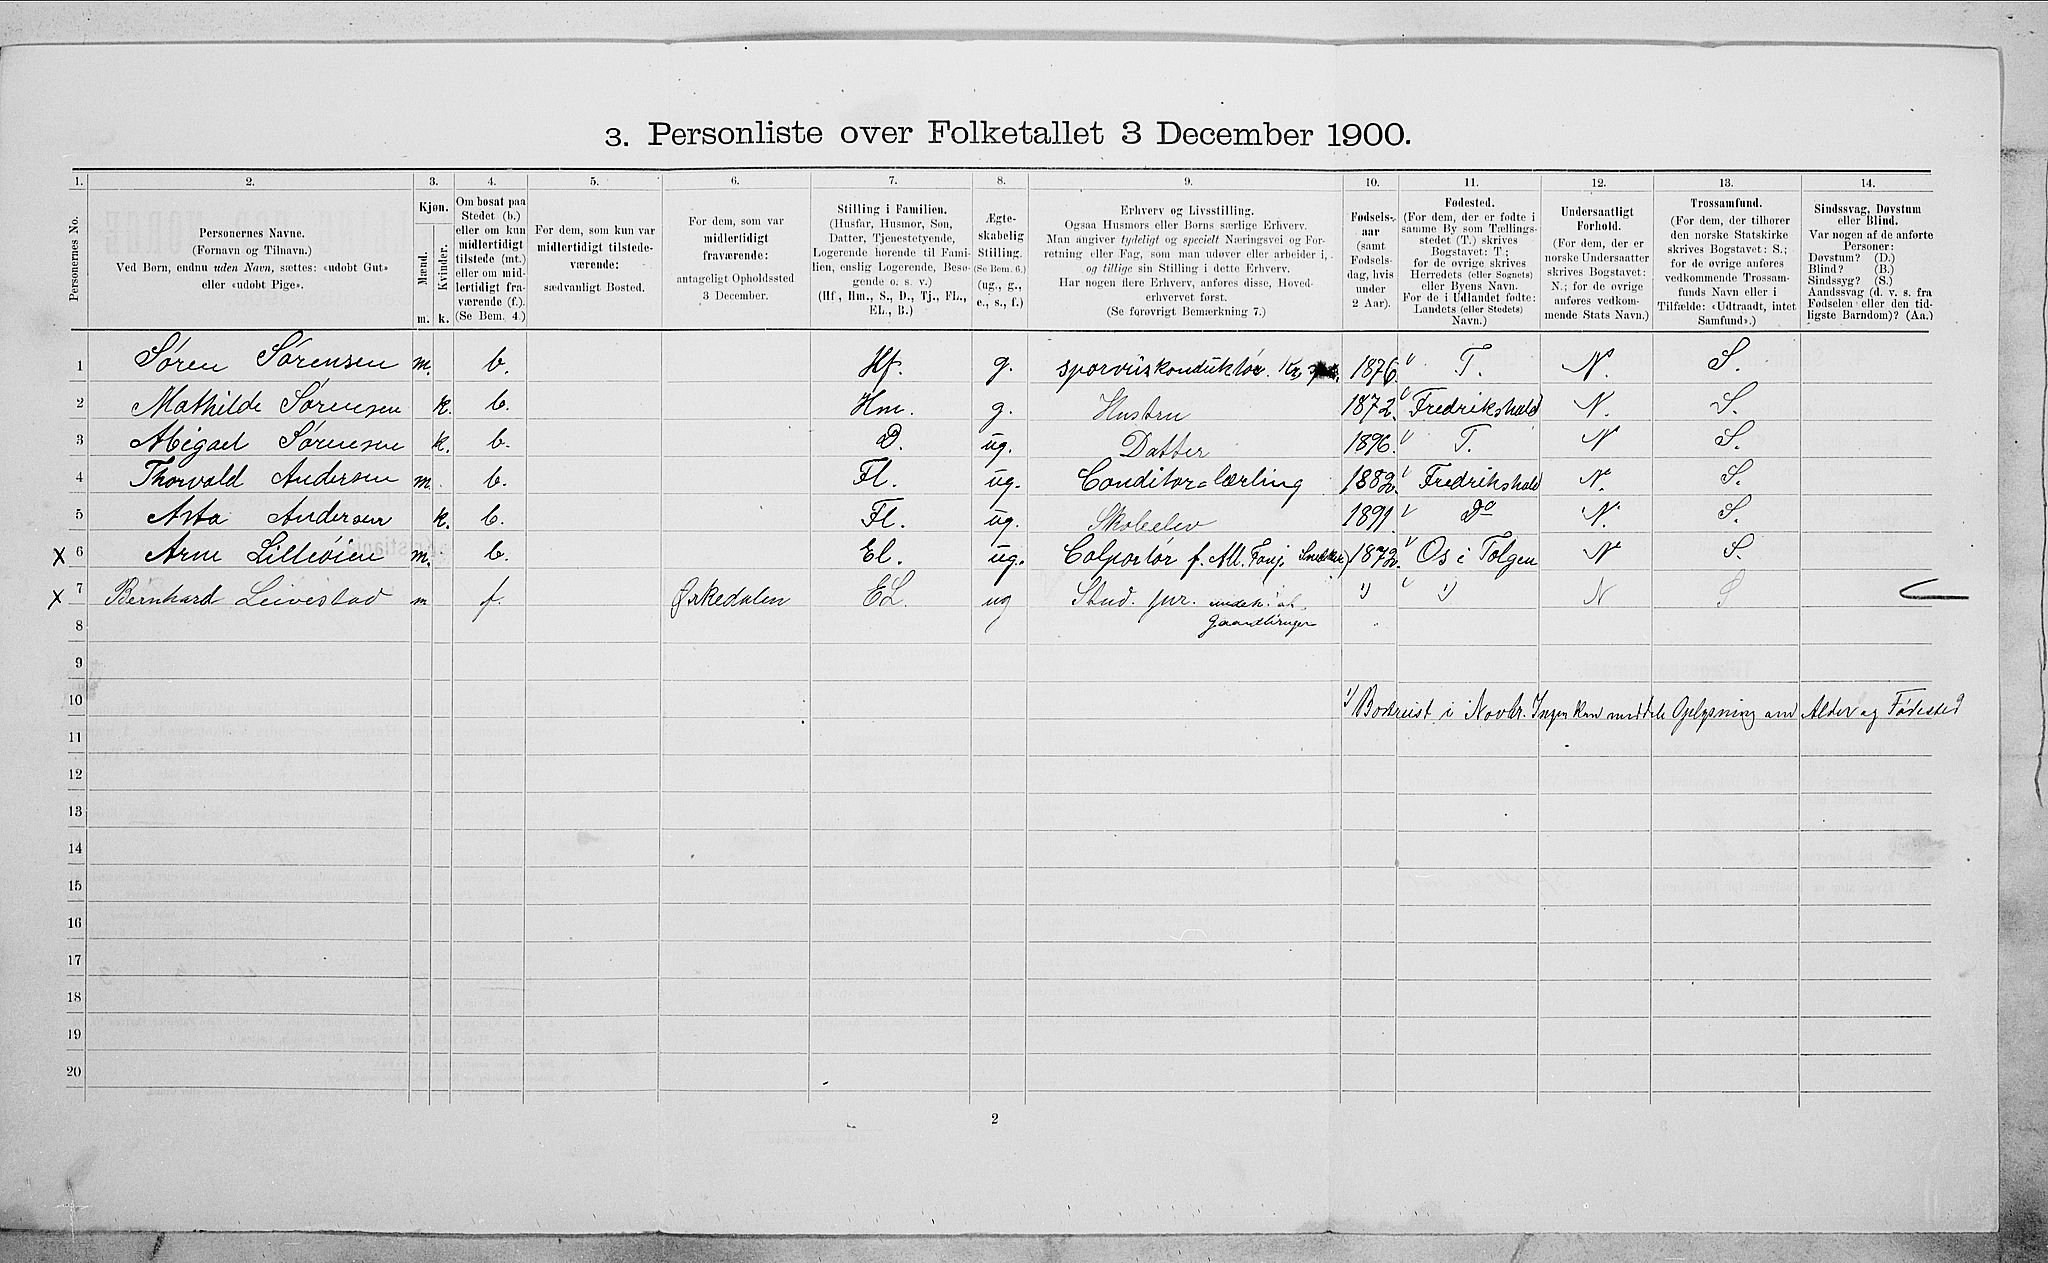 3. Personliste over Folketallet 3 December 1900.
1. 2. 3. 4. 5. 6. 7. 8. 9. 10. 11. 12. 13. 14.
Personernes No.
Personernes Navne.
(Fornavn og Tilnavn.)
Ved Børn, endnu uden Navn, sættes: «udobt Gut»
eller «udobt Pige».
Kjøn.
Mænd.
Kvinder.
m. k.
Om bosat paa
Stedet (b.)
eller om kun
midlertidigt
tilstede (mt.)
eller om mid-
lertidigt fra-
værende (f.).
(Se Bem. 4.)
For dem, som kun var
midlertidigt tilstede-
værende:
sædvanligt Bosted.
For dem, som var
midlertidigt
fraværende:
antageligt Opholdssted
3 December.
Stilling i Familien.
(Husfar, Husmor, Søn,
Datter, Tjenestetyende,
Logerende hørende til Fami-
lien, enslig Logerende, Besø-
gende o. s. v.)
(Hf., Hm., S., D., Tj., FL.,
EL., B.)
Ægte-
skabelig
Stilling.
(Se Bem. 6.)
(ug., g.,
e., s., f.)
Erhverv og Livsstilling.
Ogsaa Husmors eller Børns særlige Erhverv.
Man angiver tydeligt og specielt Næringsvei og For-
retning eller Fag, som man udøver eller arbeider i,
og tillige sin Stilling i dette Erhverv.
Har nogen flere Erhverv, anføres disse, Hoved-
erhvervet først.
(Se forøvrigt Bemærkning 7.)
Fødsels-
aar
(samt
Fødsels-
dag, hvis
under
2 Aar).
Fødested.
(For dem, der er fødte i
samme By som Tællings-
stedet (T.) skrives
Bogstavet: T;
for de øvrige skrives
Herredets (eller Sognets)
eller Byens Navn.
For de i Udlandet fødte:
Landets (eller Stedets)
Navn.)
Undersaatligt
Forhold.
(For dem, der er
norske Undersaatter
skrives Bogstavet:
N.; for de øvrige
anføres vedkom-
mende Stats Navn.)
Trossamfund.
(For dem, der tilhører
den norske Statskirke
skrives Bogstavet: S.;
for de øvrige anføres
vedkommende Trossam-
funds Navn eller i
Tilfælde: «Udtraadt, intet
Samfund».)
Sindssvag, Døvstum
eller Blind.
Var nogen af de anførte
Personer:
Døvstum? (D.)
Blind? (B.)
Sindssyg? (S.)
Aandssvag (d. v. s. fra
Fødselen eller den tid-
ligste Barndom)? (Aa.)
1 Søren Sørensen m. b. Hf. g. sporveiskonduktør. 1876. T. N. S.
2 Mathilde Sørensen k. b. Hm. g. Hustru 1872. Fredrikshald N. S.
3 Abigael Sørensen k. b. D. ug. Datter 1896. T. N S.
4 Thorvald Andersen m. b. Fl. ug. Conditor-lærling 1882. Fredrikshald N. S.
5 Asta Andersen k. b. Fl. ug. Skoleelev 1891 Do N. S.
X 6 Arne Lilleøien m. b. El. ug. Colportør f. All. Snedker) 1872. Os i Tolgen N S.
X 7 Bernhard Leivestad m f. Ørkedalen EL. ug Stud. jur. 1) 1) N S
8
9
10 1) Bortreist i Novbr. Ingen kan meddele Oplysning om Alder og Fødested
11
12
13
14
15
16
17
18
19
20
2